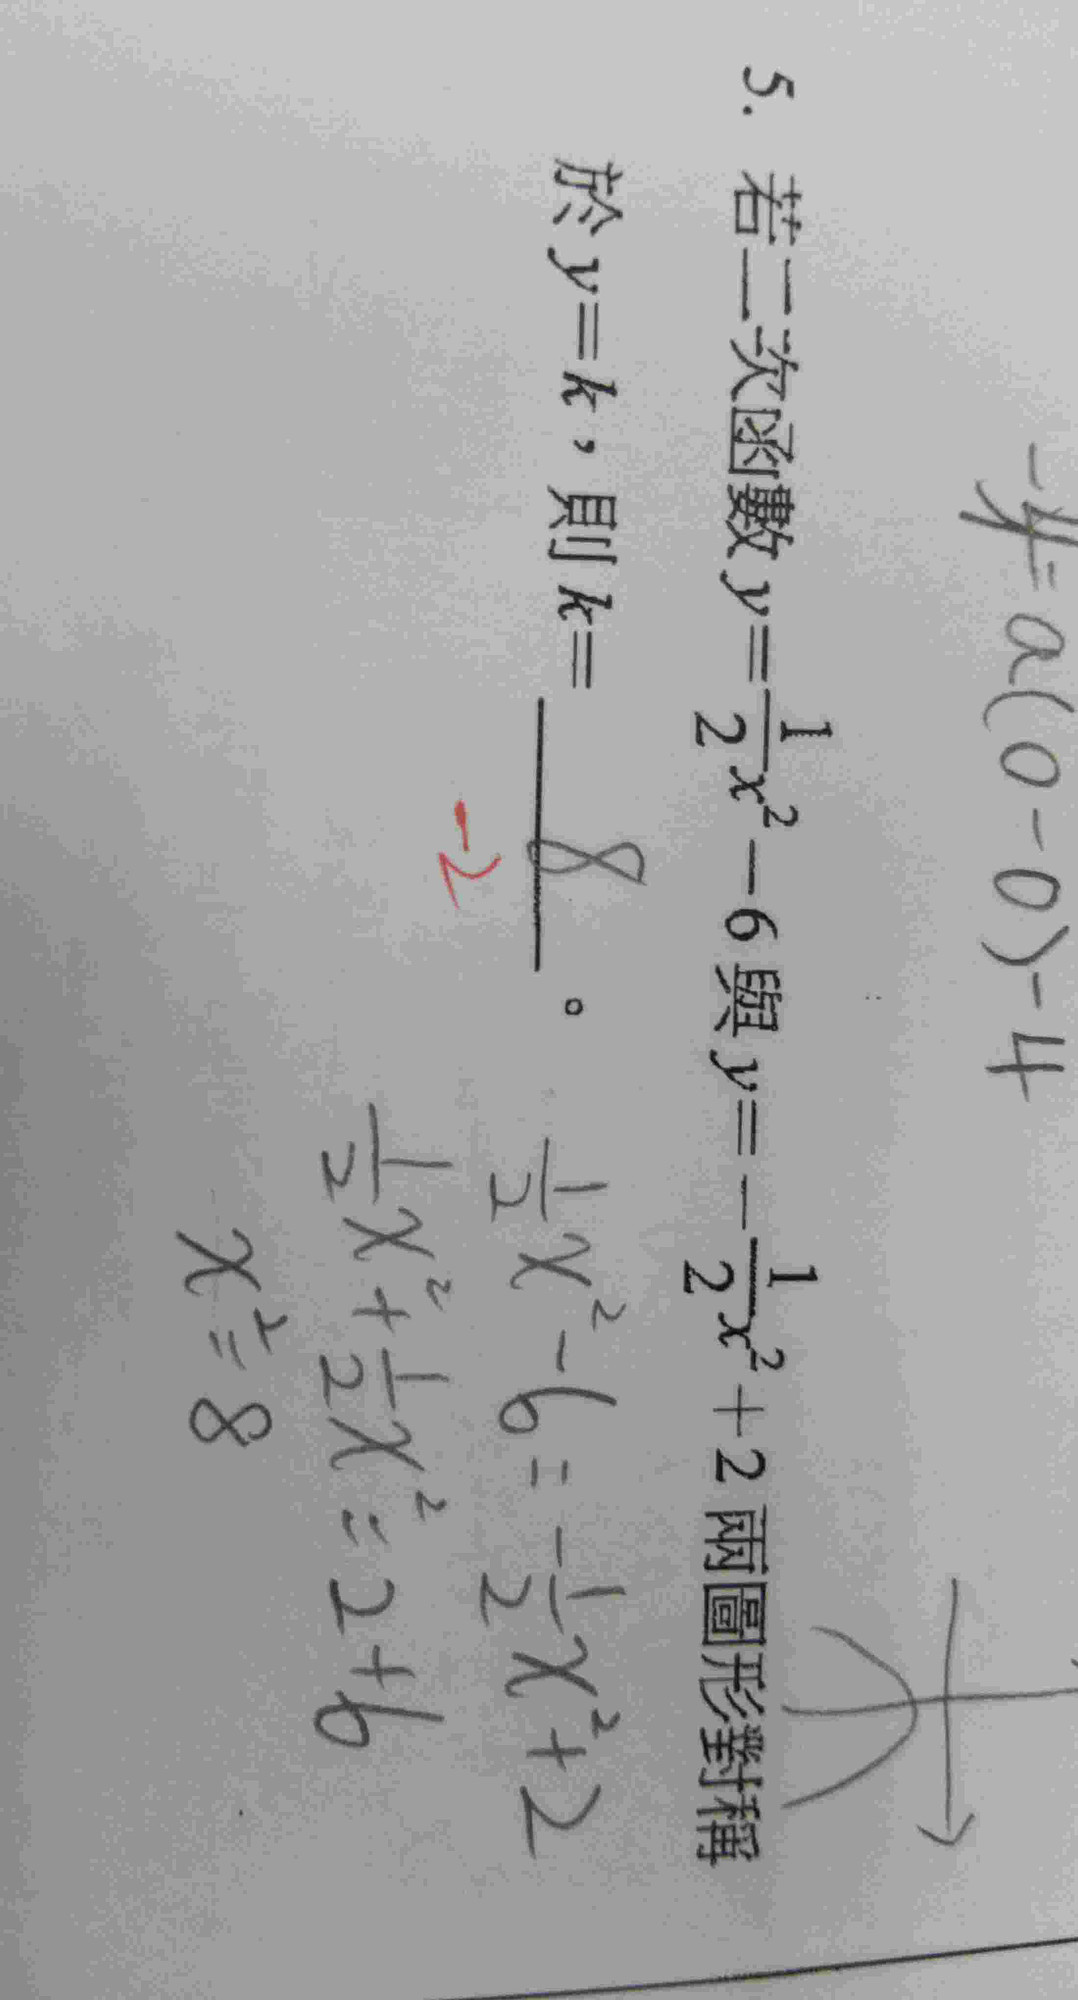 -4=a(0-0)-4
5. 若二次函數 y=\frac{1}{2}x²-6與 y=-\frac{1}{2}x²+2 兩圖形對稱
於 y=k,則 k= 8 。
-2
\frac{1}{2}x²-6=-\frac{1}{2}x²+2
\frac{1}{2}x²+\frac{1}{2}x²=2+6
x²=8